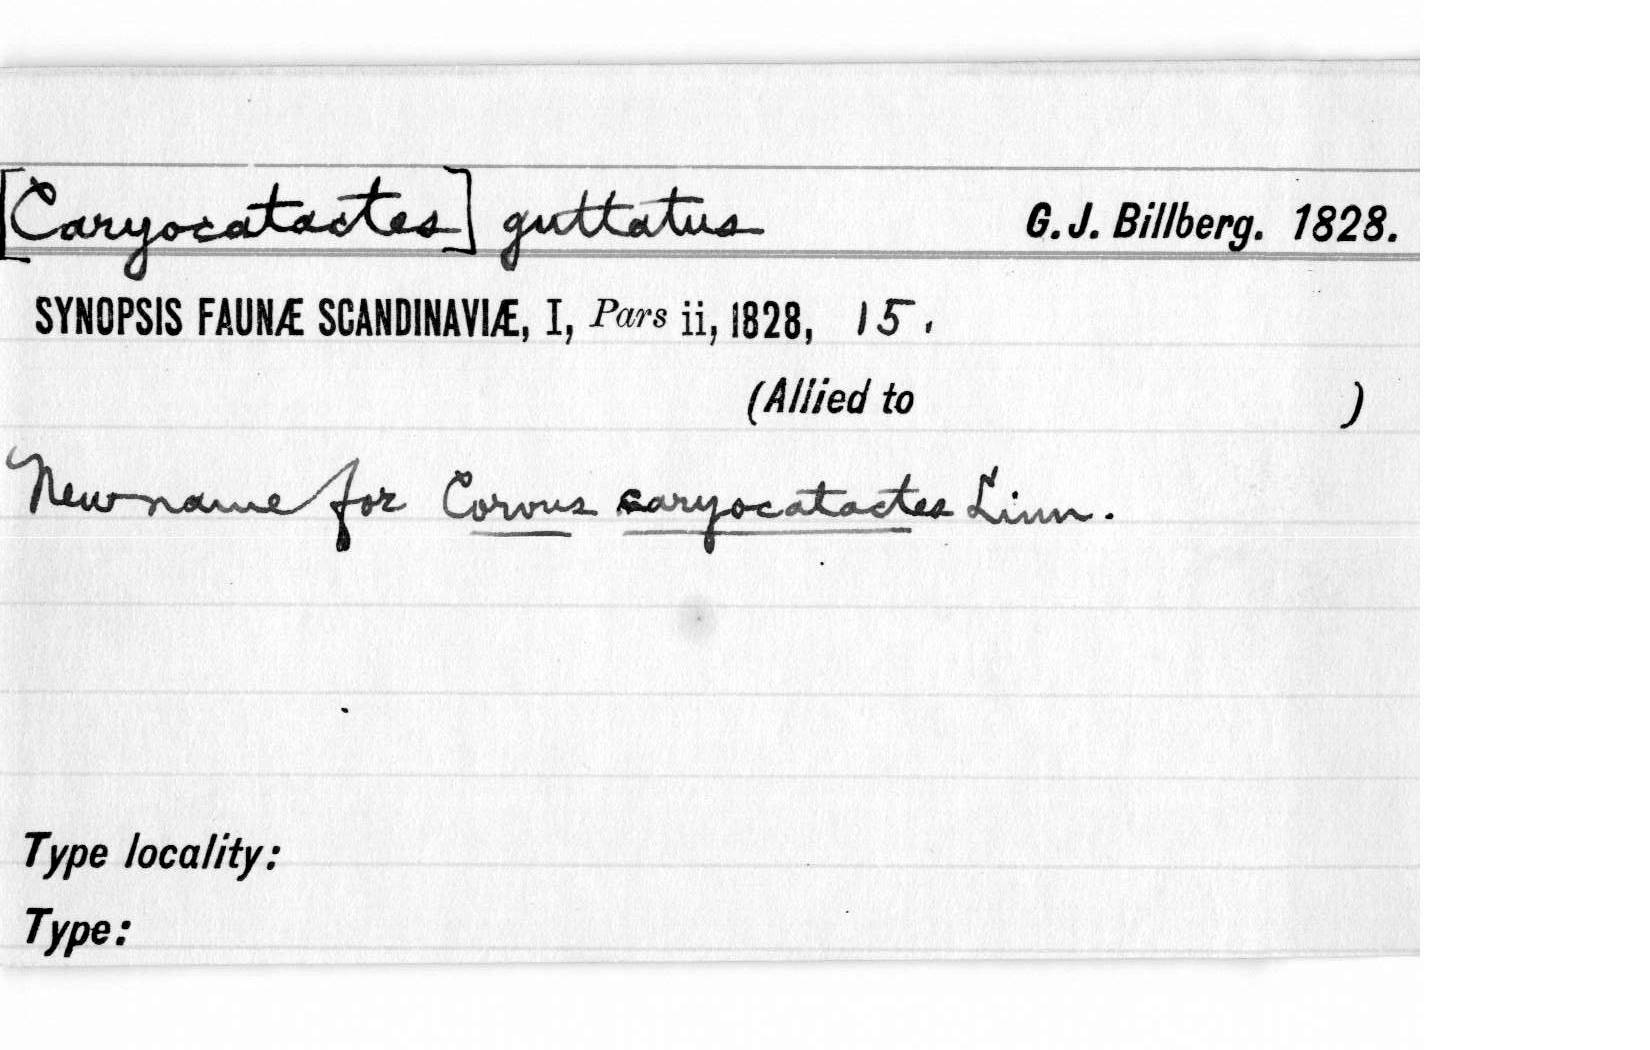 [Caryocatactes] guttatus G. J. Billberg. 1828.
SYNOPSIS FAUNÆ SCANDINAVIÆ, I, Pars ii, 1828, 15.
(Allied to )
New name for Corvus caryocatactes Linn.
Type locality:
Type: